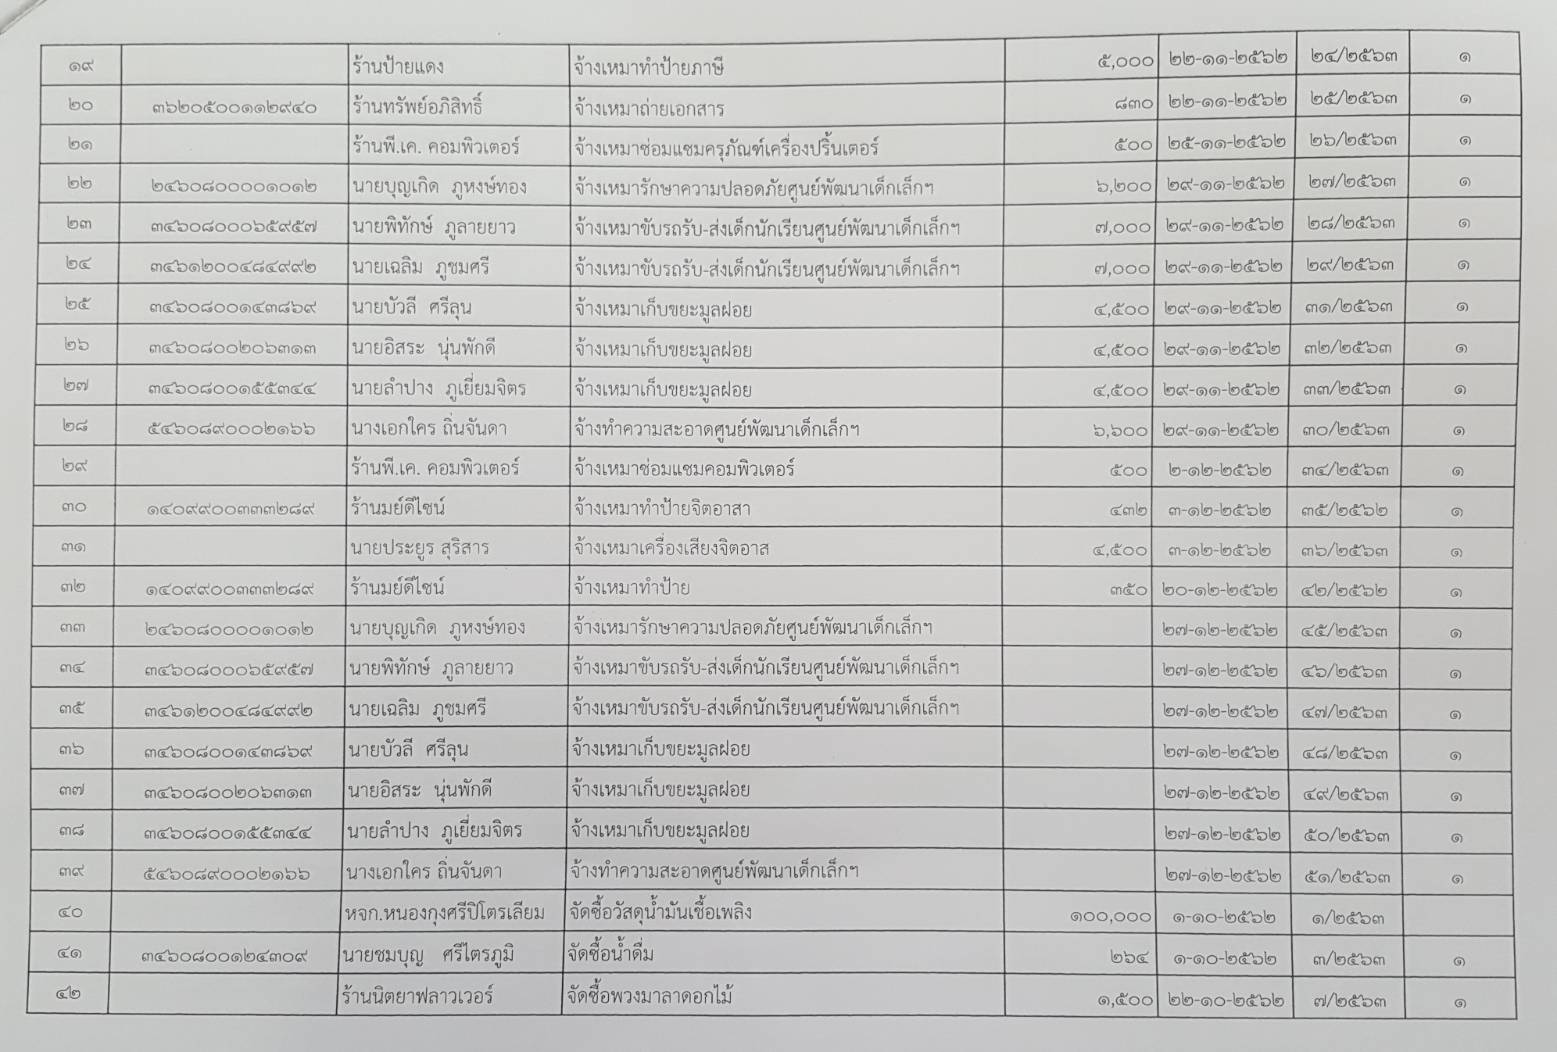 ๑๙ ร้านป้ายแดง จ้างเหมาทำป้ายภาษี ๕,๐๐๐ ๒๒-๑๑-๒๕๖๒ ๒๔/๒๕๖๓ ๑
๒๐ ๓๖๒๐๕๐๐๑๑๒๙๔๐ ร้านทรัพย์อภิสิทธิ์ จ้างเหมาถ่ายเอกสาร ๘๓๐ ๒๒-๑๑-๒๕๖๒ ๒๕/๒๕๖๓ ๑
๒๑ ร้านพี.เค. คอมพิวเตอร์ จ้างเหมาซ่อมแซมครุภัณฑ์เครื่องปริ้นเตอร์ ๕๐๐ ๒๕-๑๑-๒๕๖๒ ๒๖/๒๕๖๓ ๑
๒๒ ๒๔๖๐๘๐๐๐๐๑๐๑๒ นายบุญเกิด ภูหงษ์ทอง จ้างเหมารักษาความปลอดภัยศูนย์พัฒนาเด็กเล็กฯ ๖,๒๐๐ ๒๙-๑๑-๒๕๖๒ ๒๗/๒๕๖๓ ๑
๒๓ ๓๔๖๐๘๐๐๐๖๕๙๕๗ นายพิทักษ์ ภูลายยาว จ้างเหมาขับรถรับ-ส่งเด็กนักเรียนศูนย์พัฒนาเด็กเล็กฯ ๗,๐๐๐ ๒๙-๑๑-๒๕๖๒ ๒๘/๒๕๖๓ ๑
๒๔ ๓๔๖๑๒๐๐๔๘๔๙๙๒ นายเฉลิม ภูชมศรี จ้างเหมาขับรถรับ-ส่งเด็กนักเรียนศูนย์พัฒนาเด็กเล็กฯ ๗,๐๐๐ ๒๙-๑๑-๒๕๖๒ ๒๙/๒๕๖๓ ๑
๒๕ ๓๔๖๐๘๐๐๑๔๓๘๖๙ นายบัวลี ศรีลุน จ้างเหมาเก็บขยะมูลฝอย ๔,๕๐๐ ๒๙-๑๑-๒๕๖๒ ๓๑/๒๕๖๓ ๑
๒๖ ๓๔๖๐๘๐๐๒๐๖๓๑๓ นายอิสระ นุ่นพักดี จ้างเหมาเก็บขยะมูลฝอย ๔,๕๐๐ ๒๙-๑๑-๒๕๖๒ ๓๒/๒๕๖๓ ๑
๒๗ ๓๔๖๐๘๐๐๑๕๕๓๔๔ นายลำปาง ภูเยี่ยมจิตร จ้างเหมาเก็บขยะมูลฝอย ๔,๕๐๐ ๒๙-๑๑-๒๕๖๒ ๓๓/๒๕๖๓ ๑
๒๘ ๕๔๖๐๘๙๐๐๐๒๑๖๖ นางเอกใคร ถิ่นจันดา จ้างทำความสะอาดศูนย์พัฒนาเด็กเล็กฯ ๖,๖๐๐ ๒๙-๑๑-๒๕๖๒ ๓๐/๒๕๖๓ ๑
๒๙ ร้านพี.เค. คอมพิวเตอร์ จ้างเหมาซ่อมแซมคอมพิวเตอร์ ๕๐๐ ๒-๑๒-๒๕๖๒ ๓๔/๒๕๖๓ ๑
๓๐ ๑๔๐๙๙๐๐๓๓๓๒๘๙ ร้านมย์ดีไซน์ จ้างเหมาทำป้ายจิตอาสา ๔๓๒ ๓-๑๒-๒๕๖๒ ๓๕/๒๕๖๒ ๑
๓๑ นายประยูร สุริสาร จ้างเหมาเครื่องเสียงจิตอาส ๔,๕๐๐ ๓-๑๒-๒๕๖๒ ๓๖/๒๕๖๓ ๑
๓๒ ๑๔๐๙๙๐๐๓๓๓๒๘๙ ร้านมย์ดีไซน์ จ้างเหมาทำป้าย ๓๕๐ ๒๐-๑๒-๒๕๖๒ ๔๒/๒๕๖๒ ๑
๓๓ ๒๔๖๐๘๐๐๐๐๑๐๑๒ นายบุญเกิด ภูหงษ์ทอง จ้างเหมารักษาความปลอดภัยศูนย์พัฒนาเด็กเล็กฯ ๒๗-๑๒-๒๕๖๒ ๔๕/๒๕๖๓ ๑
๓๔ ๓๔๖๐๘๐๐๐๖๕๙๕๗ นายพิทักษ์ ภูลายยาว จ้างเหมาขับรถรับ-ส่งเด็กนักเรียนศูนย์พัฒนาเด็กเล็กฯ ๒๗-๑๒-๒๕๖๒ ๔๖/๒๕๖๓ ๑
๓๕ ๓๔๖๑๒๐๐๔๘๔๙๙๒ นายเฉลิม ภูชมศรี จ้างเหมาขับรถรับ-ส่งเด็กนักเรียนศูนย์พัฒนาเด็กเล็กฯ ๒๗-๑๒-๒๕๖๒ ๔๗/๒๕๖๓ ๑
๓๖ ๓๔๖๐๘๐๐๑๔๓๘๖๙ นายบัวลี ศรีลุน จ้างเหมาเก็บขยะมูลฝอย ๒๗-๑๒-๒๕๖๒ ๔๘/๒๕๖๓ ๑
๓๗ ๓๔๖๐๘๐๐๒๐๖๓๑๓ นายอิสระ นุ่นพักดี จ้างเหมาเก็บขยะมูลฝอย ๒๗-๑๒-๒๕๖๒ ๔๙/๒๕๖๓ ๑
๓๘ ๓๔๖๐๘๐๐๑๕๕๓๔๔ นายลำปาง ภูเยี่ยมจิตร จ้างเหมาเก็บขยะมูลฝอย ๒๗-๑๒-๒๕๖๒ ๕๐/๒๕๖๓ ๑
๓๙ ๕๔๖๐๘๙๐๐๐๒๑๖๖ นางเอกใคร ถิ่นจันดา จ้างทำความสะอาดศูนย์พัฒนาเด็กเล็กฯ ๒๗-๑๒-๒๕๖๒ ๕๑/๒๕๖๓ ๑
๔๐ หจก.หนองกุงศรีปิโตรเลียม จัดซื้อวัสดุน้ำมันเชื้อเพลิง ๑๐๐,๐๐๐ ๑-๑๐-๒๕๖๒ ๑/๒๕๖๓
๔๑ ๓๔๖๐๘๐๐๑๒๔๓๐๙ นายชมบุญ ศรีไตรภูมิ จัดซื้อน้ำดื่ม ๒๖๔ ๑-๑๐-๒๕๖๒ ๓/๒๕๖๓ ๑
๔๒ ร้านนิตยาฟลาวเวอร์ จัดซื้อพวงมาลาดอกไม้ ๑,๕๐๐ ๒๒-๑๐-๒๕๖๒ ๗/๒๕๖๓ ๑